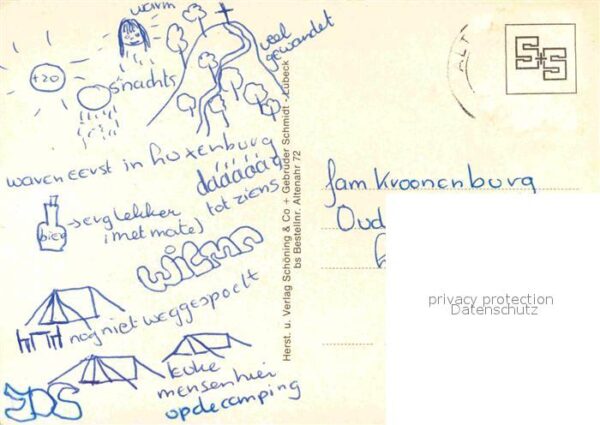 warm
+20
'snachts
veel
gewandet
waren eerst in Luxenburg
dááááág
tot ziens
bier
→ erg lekker
(met mate)
Wilma
nog niet weggespoelt
leuke
mensen hier
op de camping
JDS
Herst. u. Verlag Schöning & Co + Gebrüder Schmidt - Lübeck
bs Bestellnr. Altenahr 72
S+S
fam Kroonenburg
Oud
privacy protection
Datenschutz